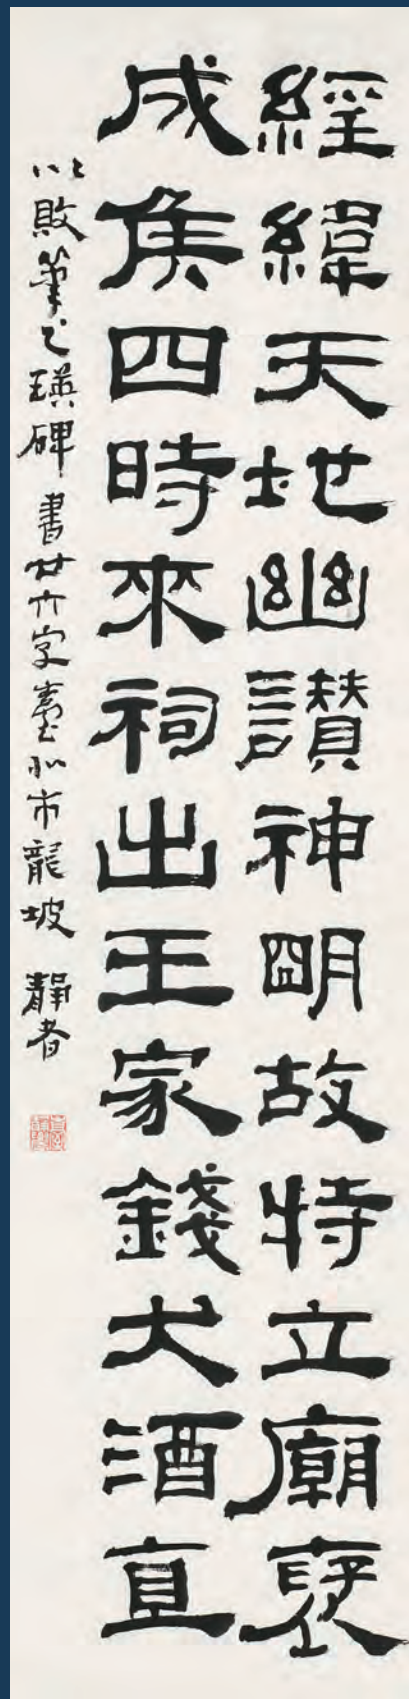 經緯天地幽讚神明故特立廟褒
成侯四時來祠出王家錢犬酒直
以敗筆乙瑛碑書廿六字臺北市龍坡 靜者